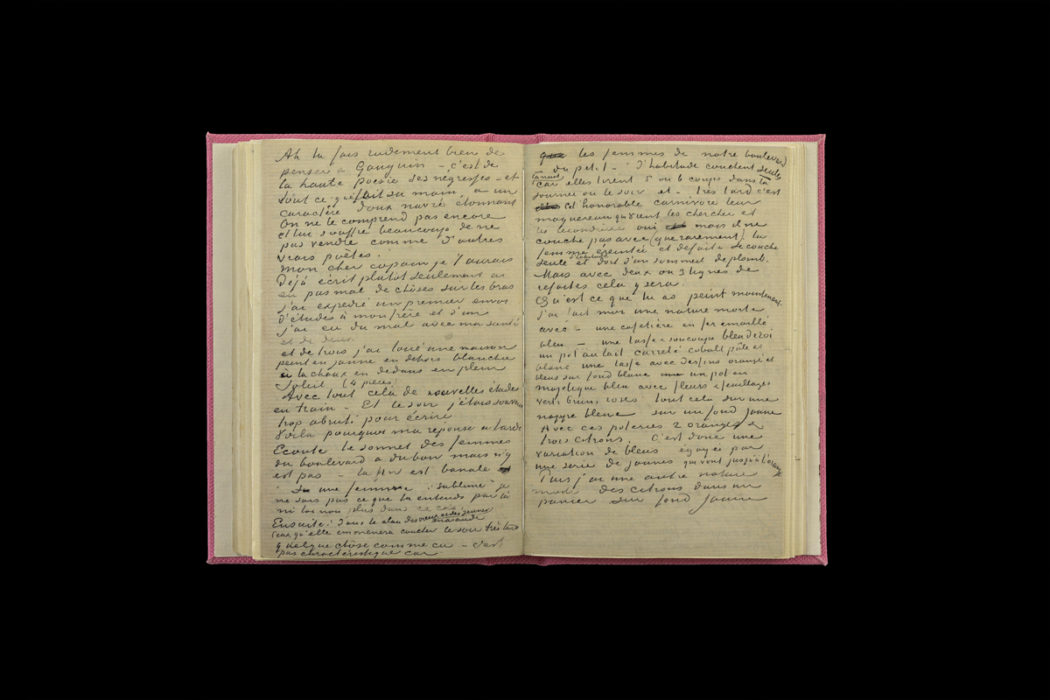 Ah tu fais rudement bien de
penser à Gauguin – c'est de
la haute poésie ses négresses – et
tout ce que fait sa main a un
caractère doux navré étonnant
On ne le comprend pas encore
et lui souffre beaucoup de ne
pas vendre comme d'autres
vrais poètes.
mon cher copain je t'aurais
Déjà écrit plutôt seulement ai
eu pas mal de choses sur les bras
j'ai expedié un premier envoi
d'études à mon frère et d'un
j'ai eu du mal avec ma santé
et de deux.
et de trois j'ai loué une maison
peint en jaune en dehors blanchie
à la chaux en dedans en plein
soleil (4 pièces)
Avec tout cela de nouvelles études
en train – Et le soir j'étais souvent
trop abruti pour écrire
Voilà pourquoi ma reponse a tardé
Ecoute le sonnet des femmes
du boulevard a du bon mais n'y
est pas – la fin est banale
une femme : sublime – je
ne sais pas ce que tu entends par là
ni toi non plus dans ce cas
Ensuite: Dans le clan des vieux et des jeunes maraude
Ceux qu'elle emmenera coucher le soir très tard
quelque chose comme ça – c'est
pas caractéristique car
les femmes de notre boulevard
du petit – D'habitude couchent seules la nuit
car elles tirent 5 ou 6 coups dans la
journée ou le soir et – Très tard c'est
cet honorable carnivore leur
maquereau qui vient les chercher et
les reconduire oui mais il ne
couche pas avec (que rarement). la
femme éreintée et defaite se couche
seule d'habitude et dort d'un sommeil de plomb.
Mais avec deux ou 3 lignes de
refaites cela y sera.
Qu'est ce que tu as peint maintenant
j'ai fait moi une nature morte
avec – une cafetière en fer emaillé
bleu – une tasse & soucoupe bleu de roi
un pot au lait carrelé cobalt pâle et
blanc une tasse avec dessins orangé et
bleus sur fond blanc un pot en
majolique bleu avec fleurs & feuillages
verts, bruns, roses Tout cela sur une
nappe bleue sur un fond jaune
Avec ces poteries 2 oranges et
trois citrons. C'est donc une
variation de bleus egayée par
une serie de jaunes qui vont jusqu'à l'orangé
Puis j'ai une autre nature
morte des citrons dans un
panier sur fond jaune